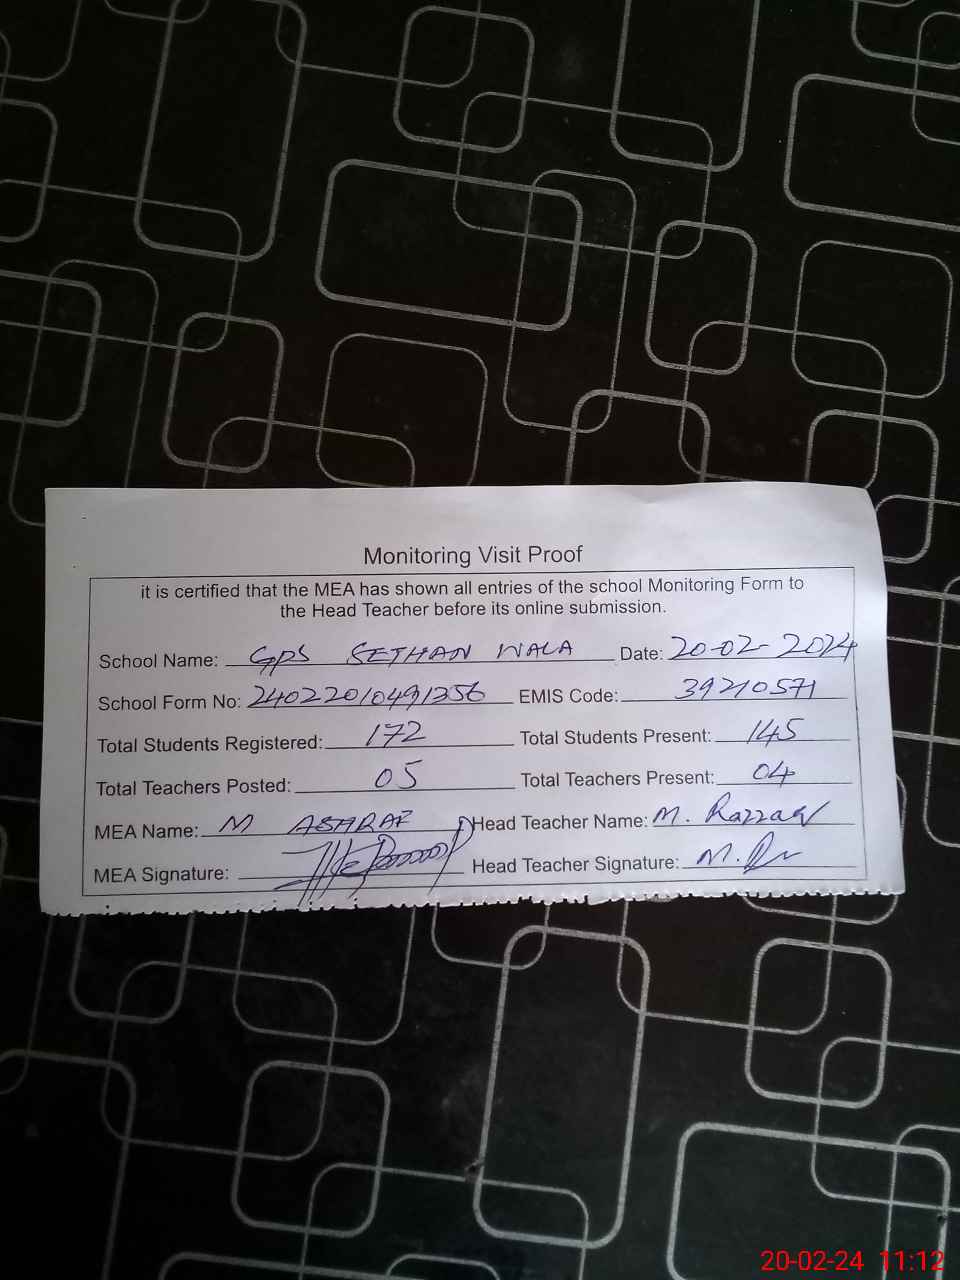 Monitoring Visit Proof
it is certified that the MEA has shown all entries of the school Monitoring Form to
the Head Teacher before its online submission.
School Name: GPS SETHAN WALA Date: 20-02-2024
School Form No: 24022010491356 EMIS Code: 39210571
Total Students Registered: 172 Total Students Present: 145
Total Teachers Posted: 05 Total Teachers Present: 04
MEA Name: M ASHRAF Head Teacher Name: M. Razzaq
MEA Signature: Head Teacher Signature: M.
20-02-24 11:12